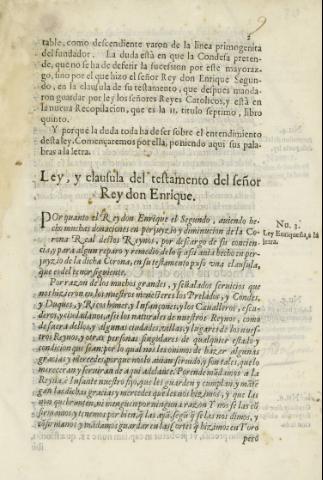 2
table, como descendiente varon de la linea primogenita
del fundador. La duda està en que la Condesa preten-
de, que no se ha de deferir la sucession por este mayoraz-
go, sino por el que hizo el señor Rey don Enrique Segun-
do, en la clausula de su testamento, que despues manda-
ron guardar por ley los señores Reyes Catolicos, y està en
la nueva Recopilacion, que es la 11. titulo septimo, libro
quinto.
Y porque la duda toda ha de ser sobre el entendimiento
desta ley. Començaremos por ella, poniendo aqui sus pala-
bras a la letra.
Ley, y clausula del testamento del señor
Rey don Enrique.
POr quanto el Rey don Enrique el Segundo, auiendo he-
cho muchas donaciones en perjuyzio y diminucion de la Co-
rona Real destos Reynos, por descargo de su concien-
cia, y para algun reparo y remedio de lo q̃ assi auia hecho en per-
juyzio de la dicha Corona, en su testamento puso vna clausula,
que es del tenor siguiente.
No. 3.
Ley Enriqueña, a la
letra.
Por razon de los muchos grandes, y señalados seruicios que
nos hizieron en los nuestros menesteres los Prelados, y Condes,
y Duques, y Ricos homes, y Infançones, y los Caualleros, y escu-
deros, y ciudadanos, assi los naturales de nuestros Reynos, como
de fuera dellos, y algunas ciudades, villas, y lugares de los nues-
tros Reynos, y otras personas singulares de qualquier estado y
condicion que sean, por lo qual nos les ouimos de hazer algunas
gracias y mercedes, porque nos lo auian seruido, y son tales, que lo
mereceran y seruiran de aqui adelante. Por ende mãdamos a la
Reyna, è Infante nuestro fijo, que les guarden y cumplan, y mãte
gan las dichas gracias y mercedes que les nos hizimos, y que las
non quebranten, ni menguen por ninguna razon Y nos se las cõ
firmamos y tenemos por bien, q̃ las ayã, segũ q̃ se las nos dimos, y
cõfirmamos, y mãdamos guardar en las Cortes q̃ hizimos en Toro
pero